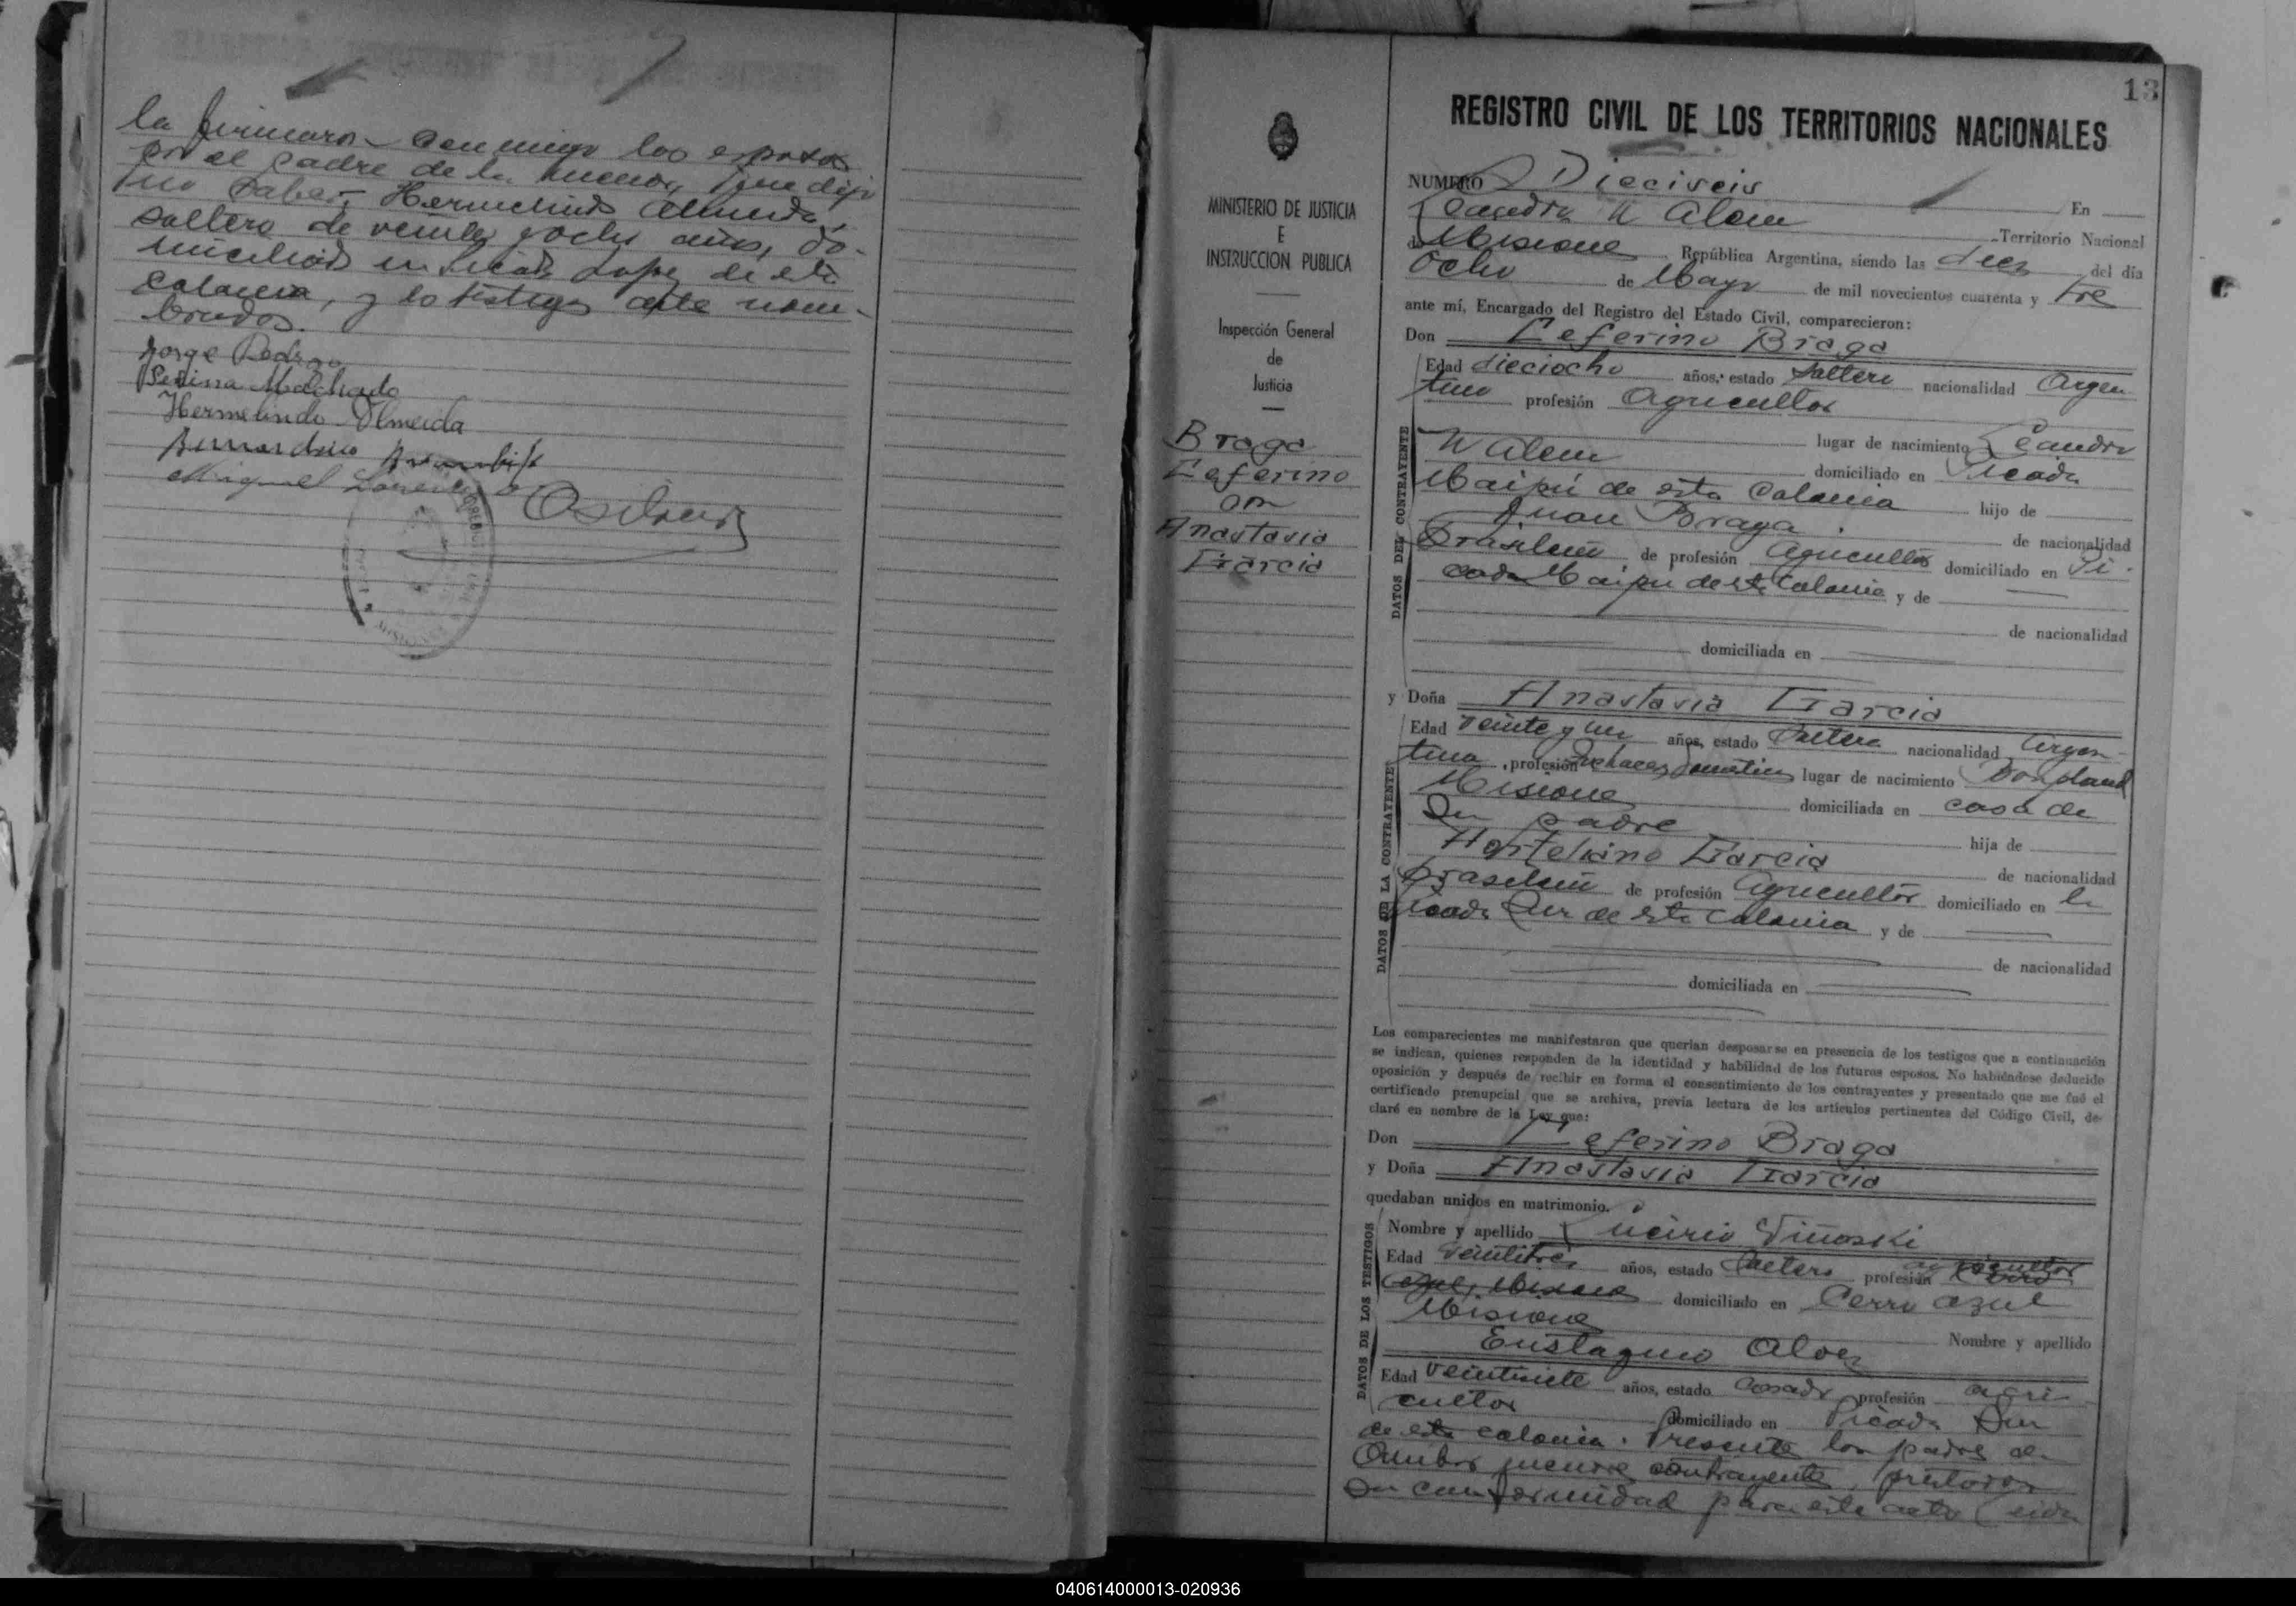 la firmaron conmigo los esposos
por el padre de la menor, que dijo
no saber, Hermelindo Almeida,
soltero de veinte y ocho años, do-
miciliado en Picada Lopez de esta
colonia, y los testigos ante nom-
brados.
Jorge Pedrozo
Hermelindo Olmeida
Miguel
13
REGISTRO CIVIL DE LOS TERRITORIOS NACIONALES
MINISTERIO DE JUSTICIA
E
INSTRUCCION PUBLICA
Inspección General
de
Justicia
Braga
Ceferino
con
Anastasia
Garcia
NUMERO Dieciseis
En
Leandro N Alem Territorio Nacional
de Misiones República Argentina, siendo las diez del día
Ocho de Mayo de mil novecientos cuarenta y tres
ante mí, Encargado del Registro del Estado Civil, comparecieron:
Don Ceferino Braga
DATOS DEL CONTRAYENTE
Edad dieciocho años, estado Soltero nacionalidad Argen
tino profesión Agricultor
lugar de nacimiento Leandro
N Alem domiciliado en Picada
Maipú de esta Colonia hijo de
Juan Braga de nacionalidad
Brasilera de profesión Agricultor domiciliado en Pi-
cada Maipu de esta Colonia y de
de nacionalidad
domiciliada en
y Doña Anastasia Garcia
DATOS DE LA CONTRAYENTE
Edad Veinte y un años, estado Soltera nacionalidad Argen-
tina, profesión Quehaceres Domesticos lugar de nacimiento Bonpland
Misiones domiciliada en casa de
Su padre hija de
Garcia de nacionalidad
Brasilera de profesión Agricultor domiciliado en la
Picada Sur de esta Colonia y de
de nacionalidad
domiciliada en
Los comparecientes me manifestaron que querían desposarse en presencia de los testigos que a continuación
se indican, quienes responden de la identidad y habilidad de los futuros esposos. No habiéndose deducido
oposición y después de recibir en forma el consentimiento de los contrayentes y presentado que me fué el
certificado prenupcial que se archiva, previa lectura de los artículos pertinentes del Código Civil, de-
claré en nombre de la Ley que:
Don Ceferino Braga
y Doña Anastasia Garcia
quedaban unidos en matrimonio.
DATOS DE LOS TESTIGOS
Nombre y apellido
Edad Veintitres años, estado Soltero profesión agricultor
domiciliado en Cerro azul
Misiones
Nombre y apellido
Eustaquio Alves
Edad Veintisiete años, estado Casado profesión agri
cultor domiciliado en Picada Sur
de esta colonia. Presente los padres de
Ambos menores contrayentes, prestaron
Su conformidad para este acto
040614000013-020936